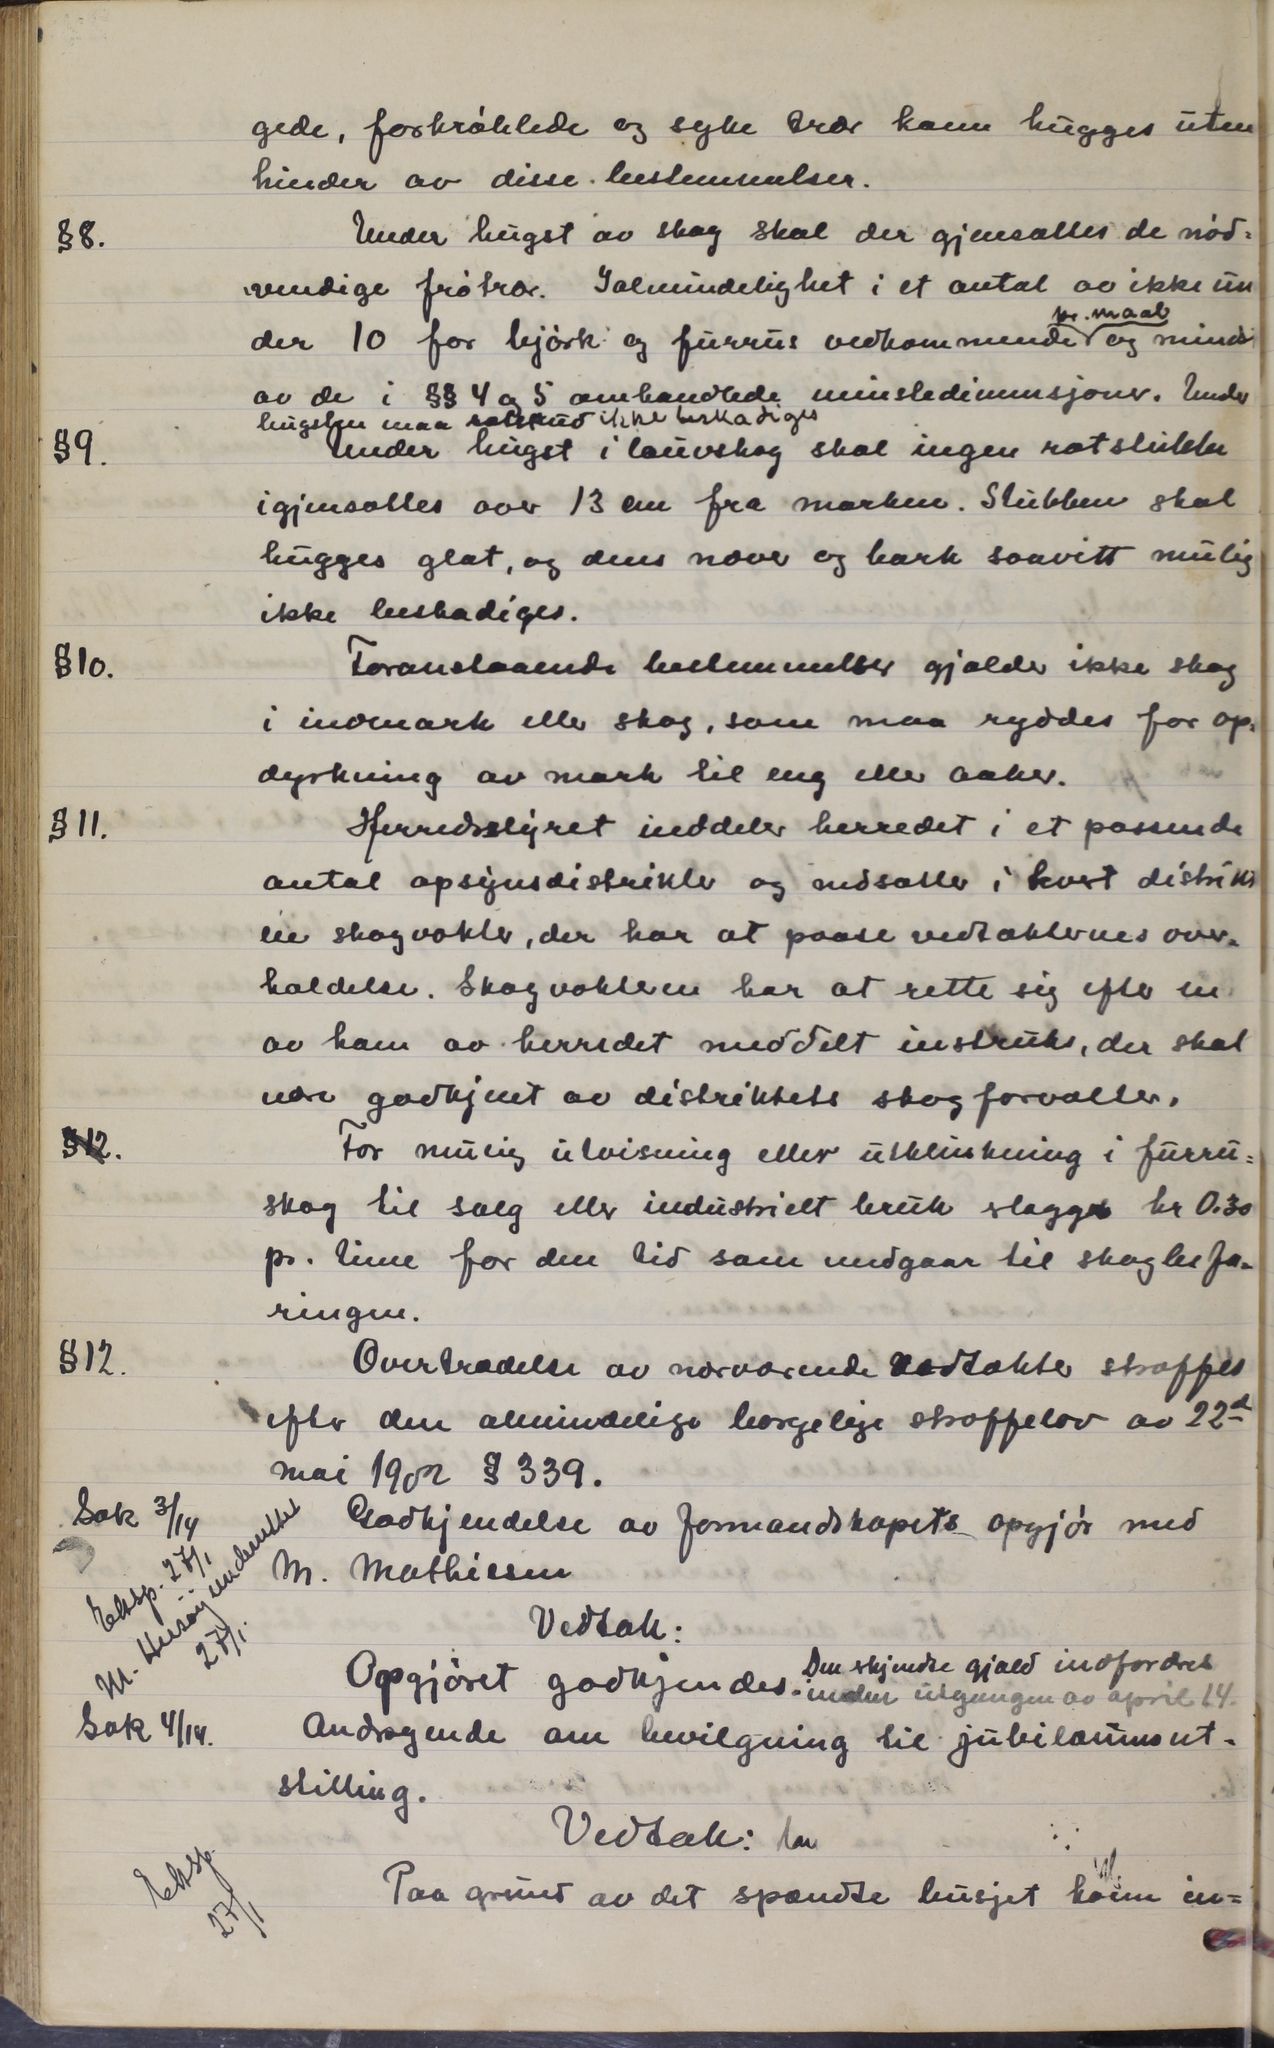 gede, forkröklede og syke trær kann hugges uten
hinder av disse bestemmelser.
§ 8. Under hugst av skog skal der gjensættes de nöd=
vendige frötrær. I almindelighet i et antal av ikke un
der 10 for björk og furrus vedkommende pr. maal og mindst
av de i §§ 4 og 5 omhandlede minstedimensjoner. Under
hugsten maa rotskud ikke beskadiges
§ 9. Under hugst i lauvskog skal ingen rotstubbe
igjensættes over 13 cm fra marken. Stubben skal
hugges glat, og dens næver og bark saavitt mulig
ikke beskadiges.
§ 10. Foranstaaende bestemmelser gjælder ikke skog
i indmark eller skog, som maa ryddes for op-
dyrkning av mark til eng eller aaker.
§ 11. Herredsstyret inddeler herredet i et passende
antal opsynsdistrikter og nedsætter i hvert distrikt
en skogvokter, der har at paase vedtækternes over-
holdelse. Skogvokteren har at rette sig efter en
av ham av herredet meddelt instruks, der skal
være godkjent av distriktets skogforvalter.
§ 12. For mulig utvisning eller utblinkning i furru=
skog til salg eller industrielt bruk erlægges kr 0.30
pr. time for den tid som medgaar til skogbefa-
ringen.
§ 12. Overtrædelse av nærværende vedtækter straffes
efter den almindelige borgelige straffelov av 22d
mai 1902 § 339.
Sak 3/14 Godkjendelse av formandskapets opgjör med
M. Mathiesen
Eksp. 27/1
M. Husöy underrettet
27/1.
Vedtak:
Opgjöret godkjendes. Den skjendte gjæld indfordres
inden utgangen av april 14.
Sak 4/14. Andragende om bevilgning til jubilæumsut-
stilling.
Vedtak:
Eksp.
27/1
Paa grund av det spændte busjet kann in=